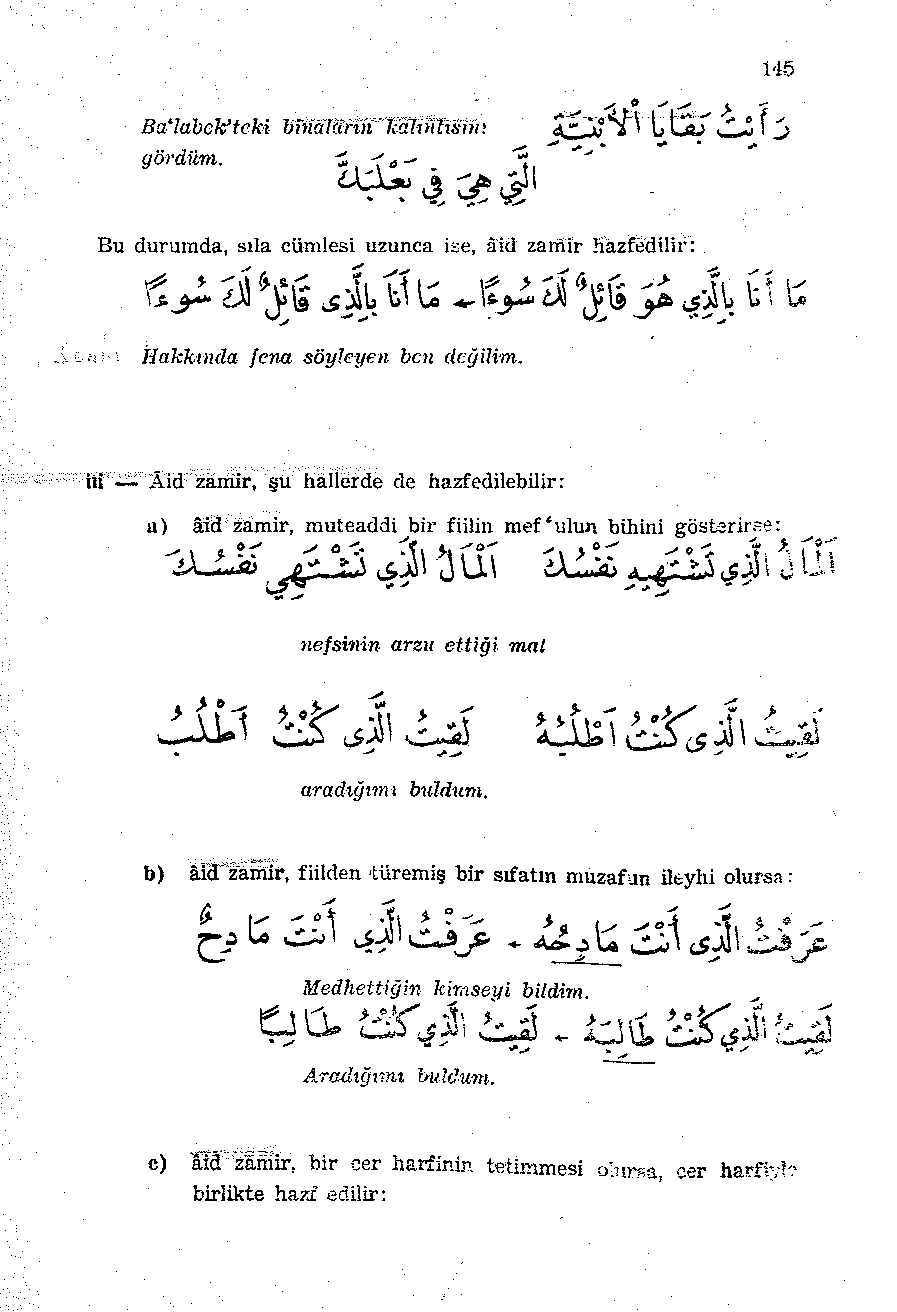 145
Ba'labek'teki binaların kalıntısını رَأَيْتُ بَقَايَا ٱلْأَبْنِيَةِ
gördüm. الَّتِي هِيَ فِي بَعْلَبَكَّ
Bu durumda, sıla cümlesi uzunca ise, âid zamir hazfedilir:
مَا أَنَا بِالَّذِي هُوَ قَائِلٌ لَكَ سُوءًا - مَا أَنَا بِالَّذِى قَائِلٌ لَكَ سُوءًا
Hakkında fena söyleyen ben değilim.
iii — Âid zamir, şu hallerde de hazfedilebilir:
a) âid zamir, muteaddi bir fiilin mef'ulun bihini gösterirse:
اَلْمَالُ الَّذِي تَشْتَهِيهِ نَفْسُكَ اَلْمَالُ الَّذِي تَشْتَهِي نَفْسُكَ
nefsinin arzu ettiği mal
لَقِيتُ الَّذِى كُنْتُ اَطْلُبُهُ لَقِيتُ الَّذِى كُنْتُ اَطْلُبُ
aradığımı buldum.
b) âid zamir, fiilden türemiş bir sıfatın muzafun ileyhi olursa:
عَرَفْتُ الَّذِى أَنْتَ مَادِحُهُ - عَرَفْتُ الَّذِي أَنْتَ مَادِحٌ
Medhettiğin kimseyi bildim.
لَقِيتُ الَّذِي كُنْتُ طَالِبَهُ - لَقِيتُ الَّذِي كُنْتُ طَالِبًا
Aradığımı buldum.
c) âid zamir, bir cer harfinin tetimmesi olursa, cer harfiyle
birlikte hazf edilir: